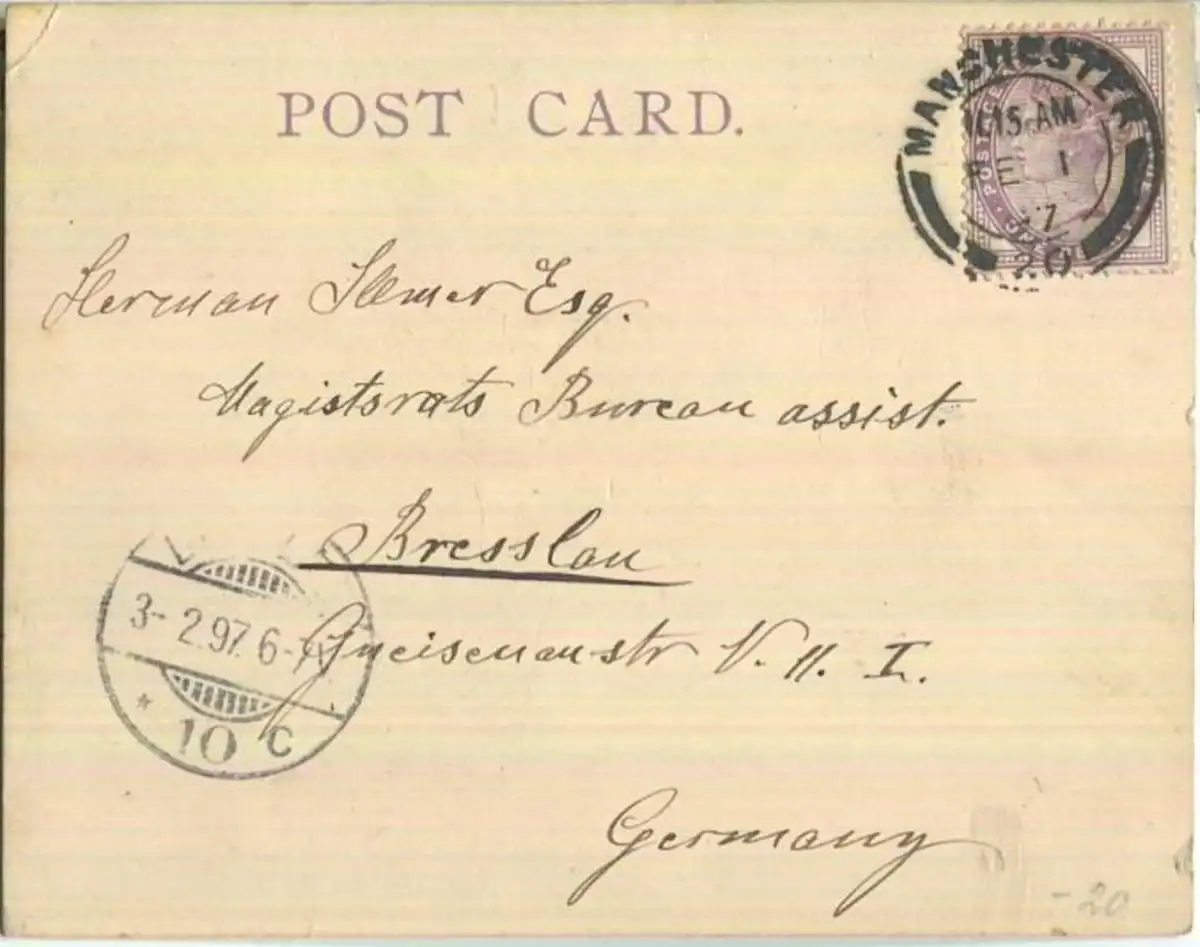 POST CARD.
MANCHESTER
15 AM
FE 1
97
20
POSTAGE
Herman Illmer Esq.
Magistrats Bureau assist.
Bresslau
Gneisenaustr V. II. I.
Germany
3-2.97. 6-7
* 10 c
-20